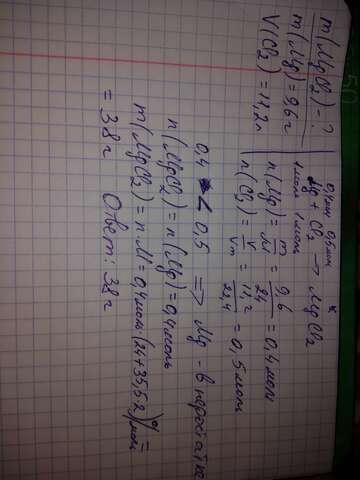 m(MgCl₂) - ?
m(Mg) = 9,6 г
V(Cl₂) = 11,2 л
0,4 моль 0,5 моль x
Mg + Cl₂ → MgCl₂
1 моль 1 моль
n(Mg) = m/M = 9,6/24 = 0,4 моль
n(Cl₂) = V/Vm = 11,2/22,4 = 0,5 моль
0,4 < 0,5 => Mg - в недостатке
n(MgCl₂) = n(Mg) = 0,4 моль
m(MgCl₂) = n·M = 0,4 моль·(24+35,5·2) г/моль =
= 38 г Ответ: 38 г